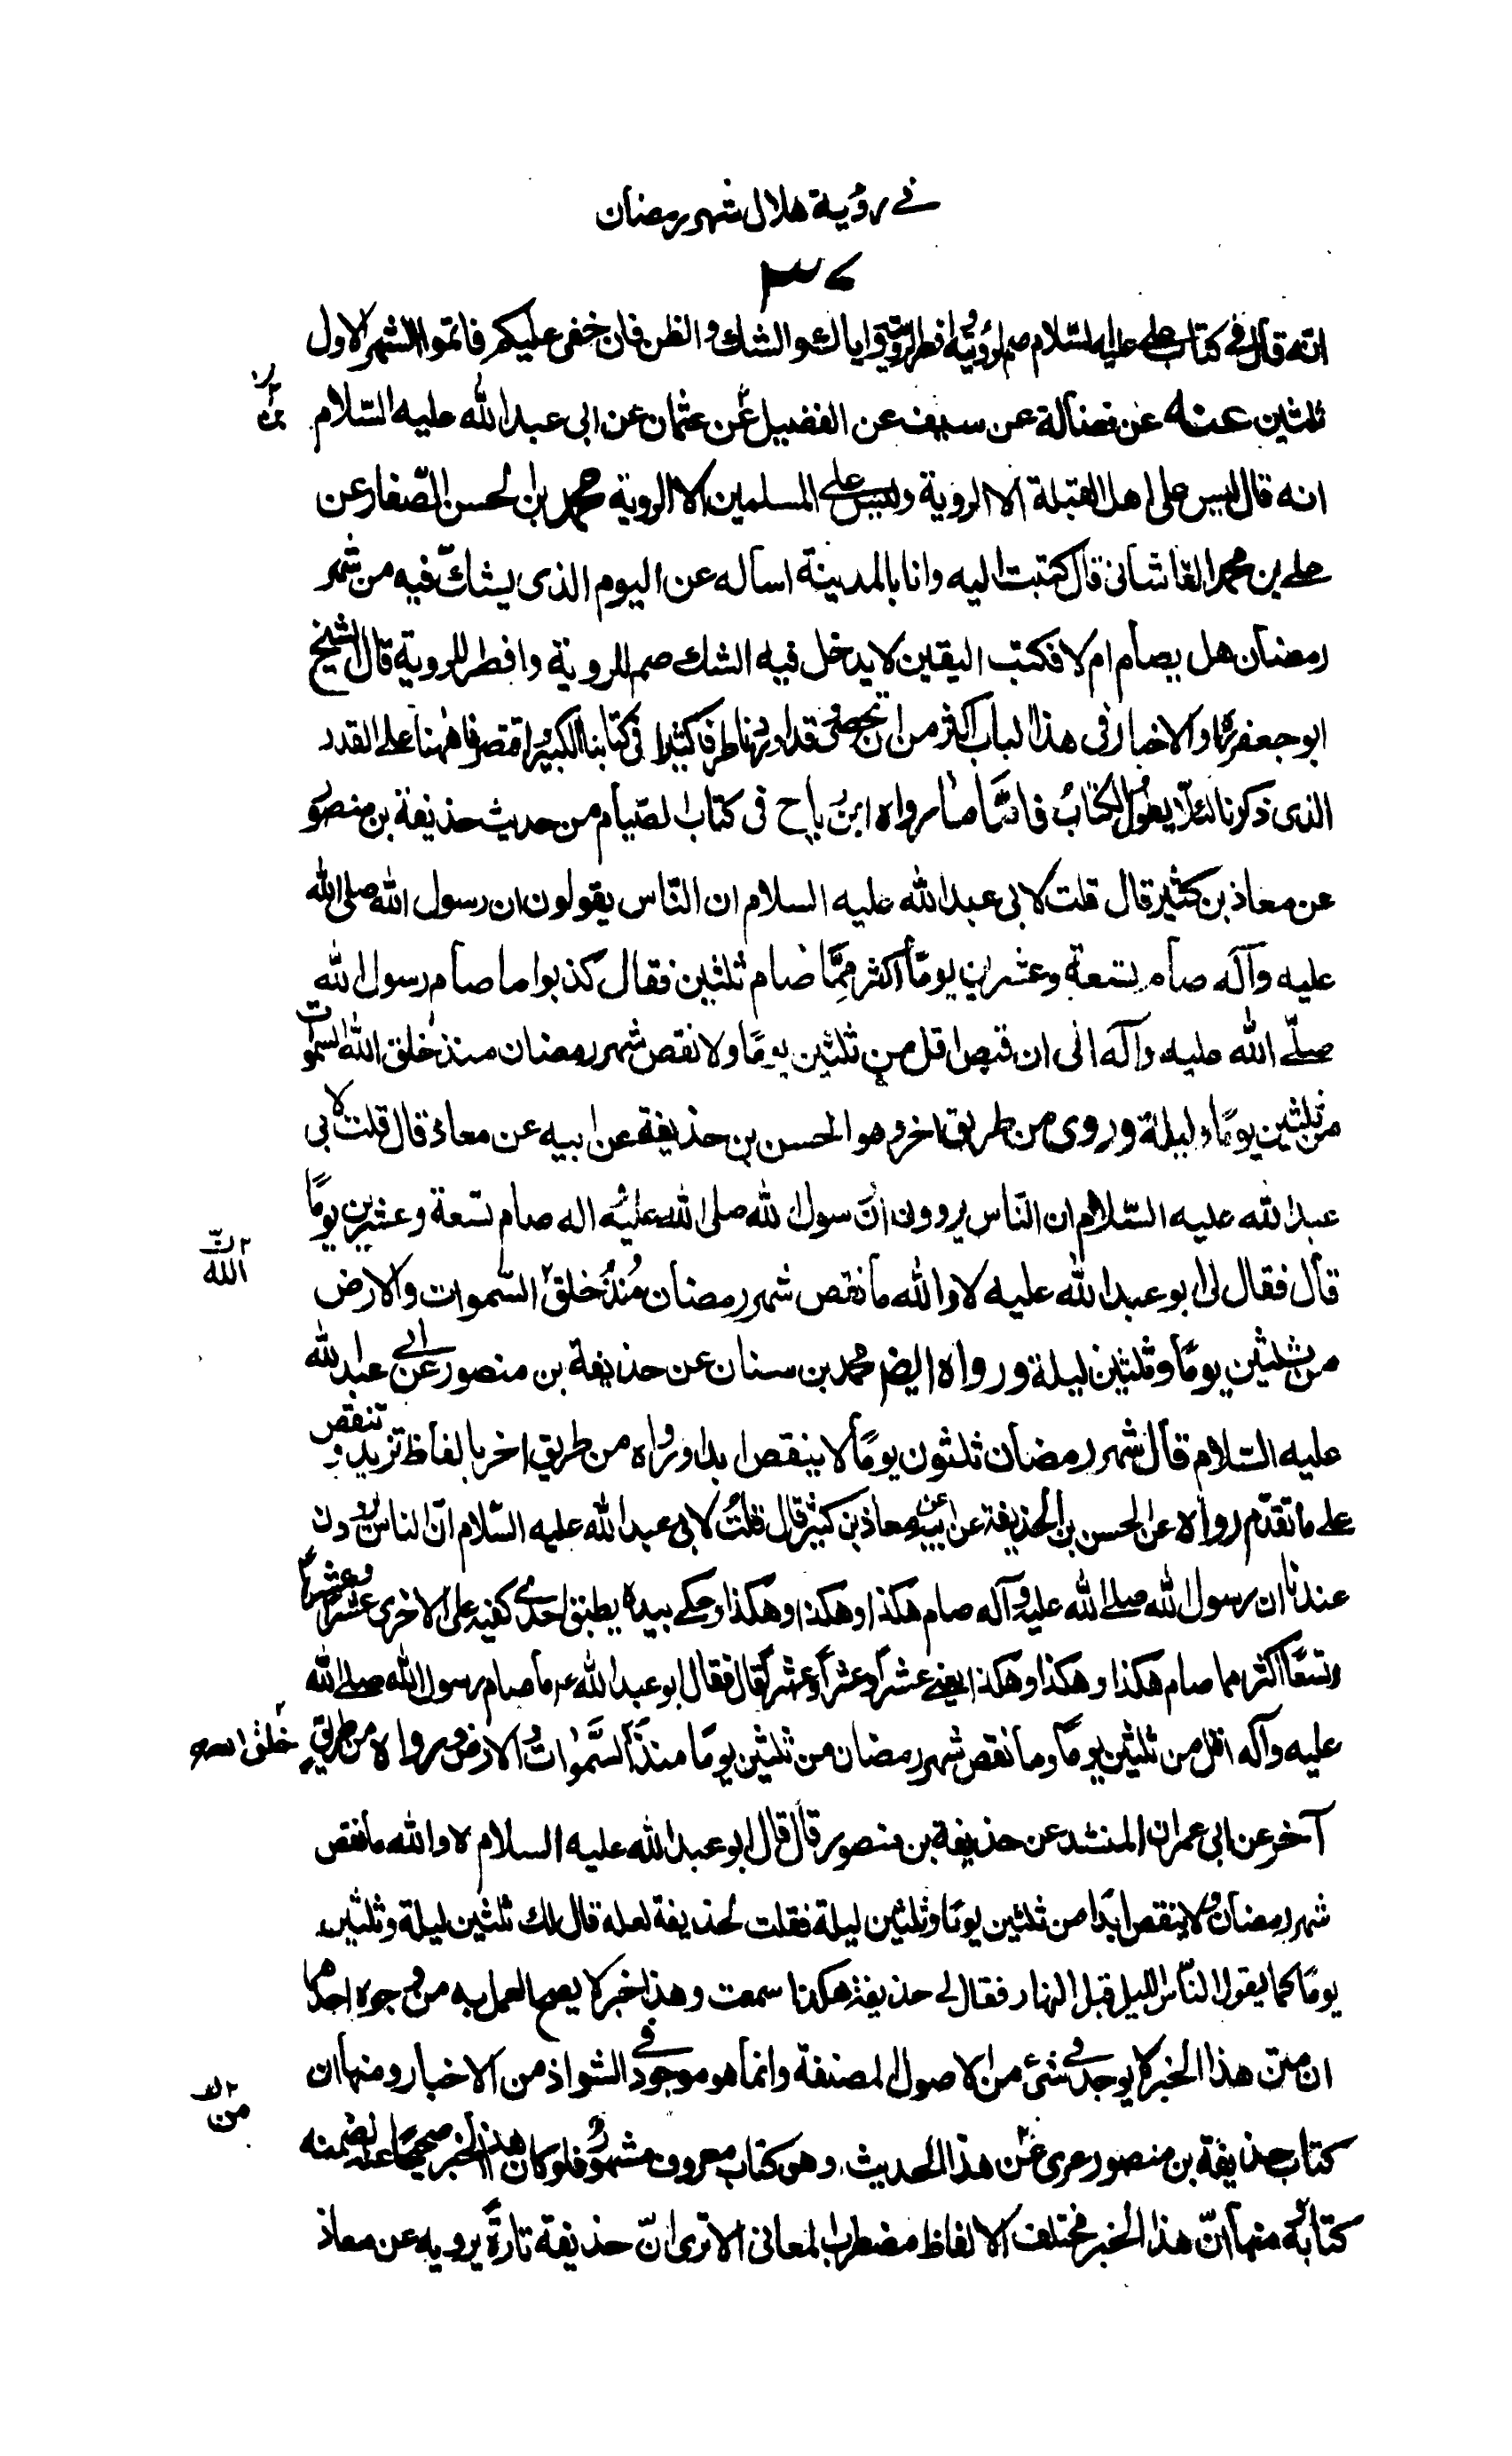 في رؤية هلال شهر رمضان
انه قال في كتاب علي عليه السلام صم لرؤيته وافطر لرؤيته واياك والشك والظن فان خفى عليكم فاتموا الشهر الاول
ثلثين عنه عن فضالة عن سيف عن الفضيل عن عثمان عن ابى عبد الله عليه السلام
بن
انه قال ليس على اهل القبلة الا الروية وليس على المسلمين الا الروية محمد بن الحسن الصفار عن
علي بن محمد القاشانى قال كتبت اليه وانا بالمدينة اساله عن اليوم الذى يشك فيه من شهر
رمضان هل يصام ام لا فكتب اليقين لا يدخل فيه الشك صم للروية وافطر للروية قال الشيخ
ابو جعفر والاخبار فى هذا الباب اكثر من ان تحصى قد اوردنا طرفا كثيرا فى كتابنا الكبير اقتصرنا ههنا على القدر
الذى ذكرنا لئلا يطول الكتاب فاما ما رواه ابن رباح فى كتاب الصيام من حديث حذيفة بن منصور
عن معاذ بن كثير قال قلت لابى عبد الله عليه السلام ان الناس يقولون ان رسول الله صلى الله
عليه وآله صام تسعة وعشرين يوما أكثر مما صام ثلثين فقال كذبوا ما صام رسول الله
صلى الله عليه وآله الى ان قبض اقل من ثلثين يوما ولا نقص شهر رمضان منذ خلق الله السموات
من ثلثين يوما وليلة وروى من طريق اخر وهو الحسن بن حذيفة عن ابيه عن معاذ قال قلت لابى
عبد الله عليه السلام ان الناس يروون ان رسول الله صلى الله عليه واله صام تسعة وعشرين يوما
قال فقال لى ابو عبد الله عليه لا والله ما نقص شهر رمضان منذ خلق السموات والارض
الله
من ثلثين يوما وثلثين ليلة ورواه ايضم محمد بن سنان عن حذيفة بن منصور عن ابي عبد الله
عليه السلام قال شهر رمضان ثلثون يوما لا ينقص ابدا ورواه من طريق اخر بالفاظ تزيد وتنقص
على ما تقدم رواه عن الحسن بن الحذيفة عن ابيه عن معاذ بن كثير قال قلت لابى عبد الله عليه السلام ان الناس يروون
عندنا ان رسول الله صلى الله عليه وآله صام هكذا وهكذا وهكذا وحكى بيده يطبق احدى كفيه على الاخرى عشرا وعشرا
وتسعا اكثر مما صام هكذا وهكذا وهكذا يعني عشرا وعشرا وعشرا قال فقال ابو عبد الله ع ما صام رسول الله صلى الله
عليه وآله اقل من ثلثين يوما وما نقص شهر رمضان من ثلثين يوما منذ السموات والارض ورواه من طريق
خلق الله
آخر عن ابى عمران المنشد عن حذيفة بن منصور قال قال ابو عبد الله عليه السلام لا والله ما نقص
شهر رمضان ولا ينقص ابدا من ثلثين يوما وثلثين ليلة فقلت لحذيفة لعله قال لك ثلثين ليلة وثلثين
يوما كما يقول الناس الليل قبل النهار فقال لى حذيفة هكذا سمعت وهذا خبر لا يصح العمل به من وجوه احدها
ان متن هذا الخبر لا يوجد في شئ من الاصول المصنفة وانما هو موجود في الشواذ من الاخبار ومنها ان
كتاب حذيفة بن منصور عرى عن هذا الحديث وهى كتاب معروف مشهور فلو كان هذا الخبر صحيحا عنه لضمنه
من
كتابه ومنها ان هذا الخبر مختلف الالفاظ مضطرب المعانى الا ترى ان حذيفة تارة يرويه عن معاذ